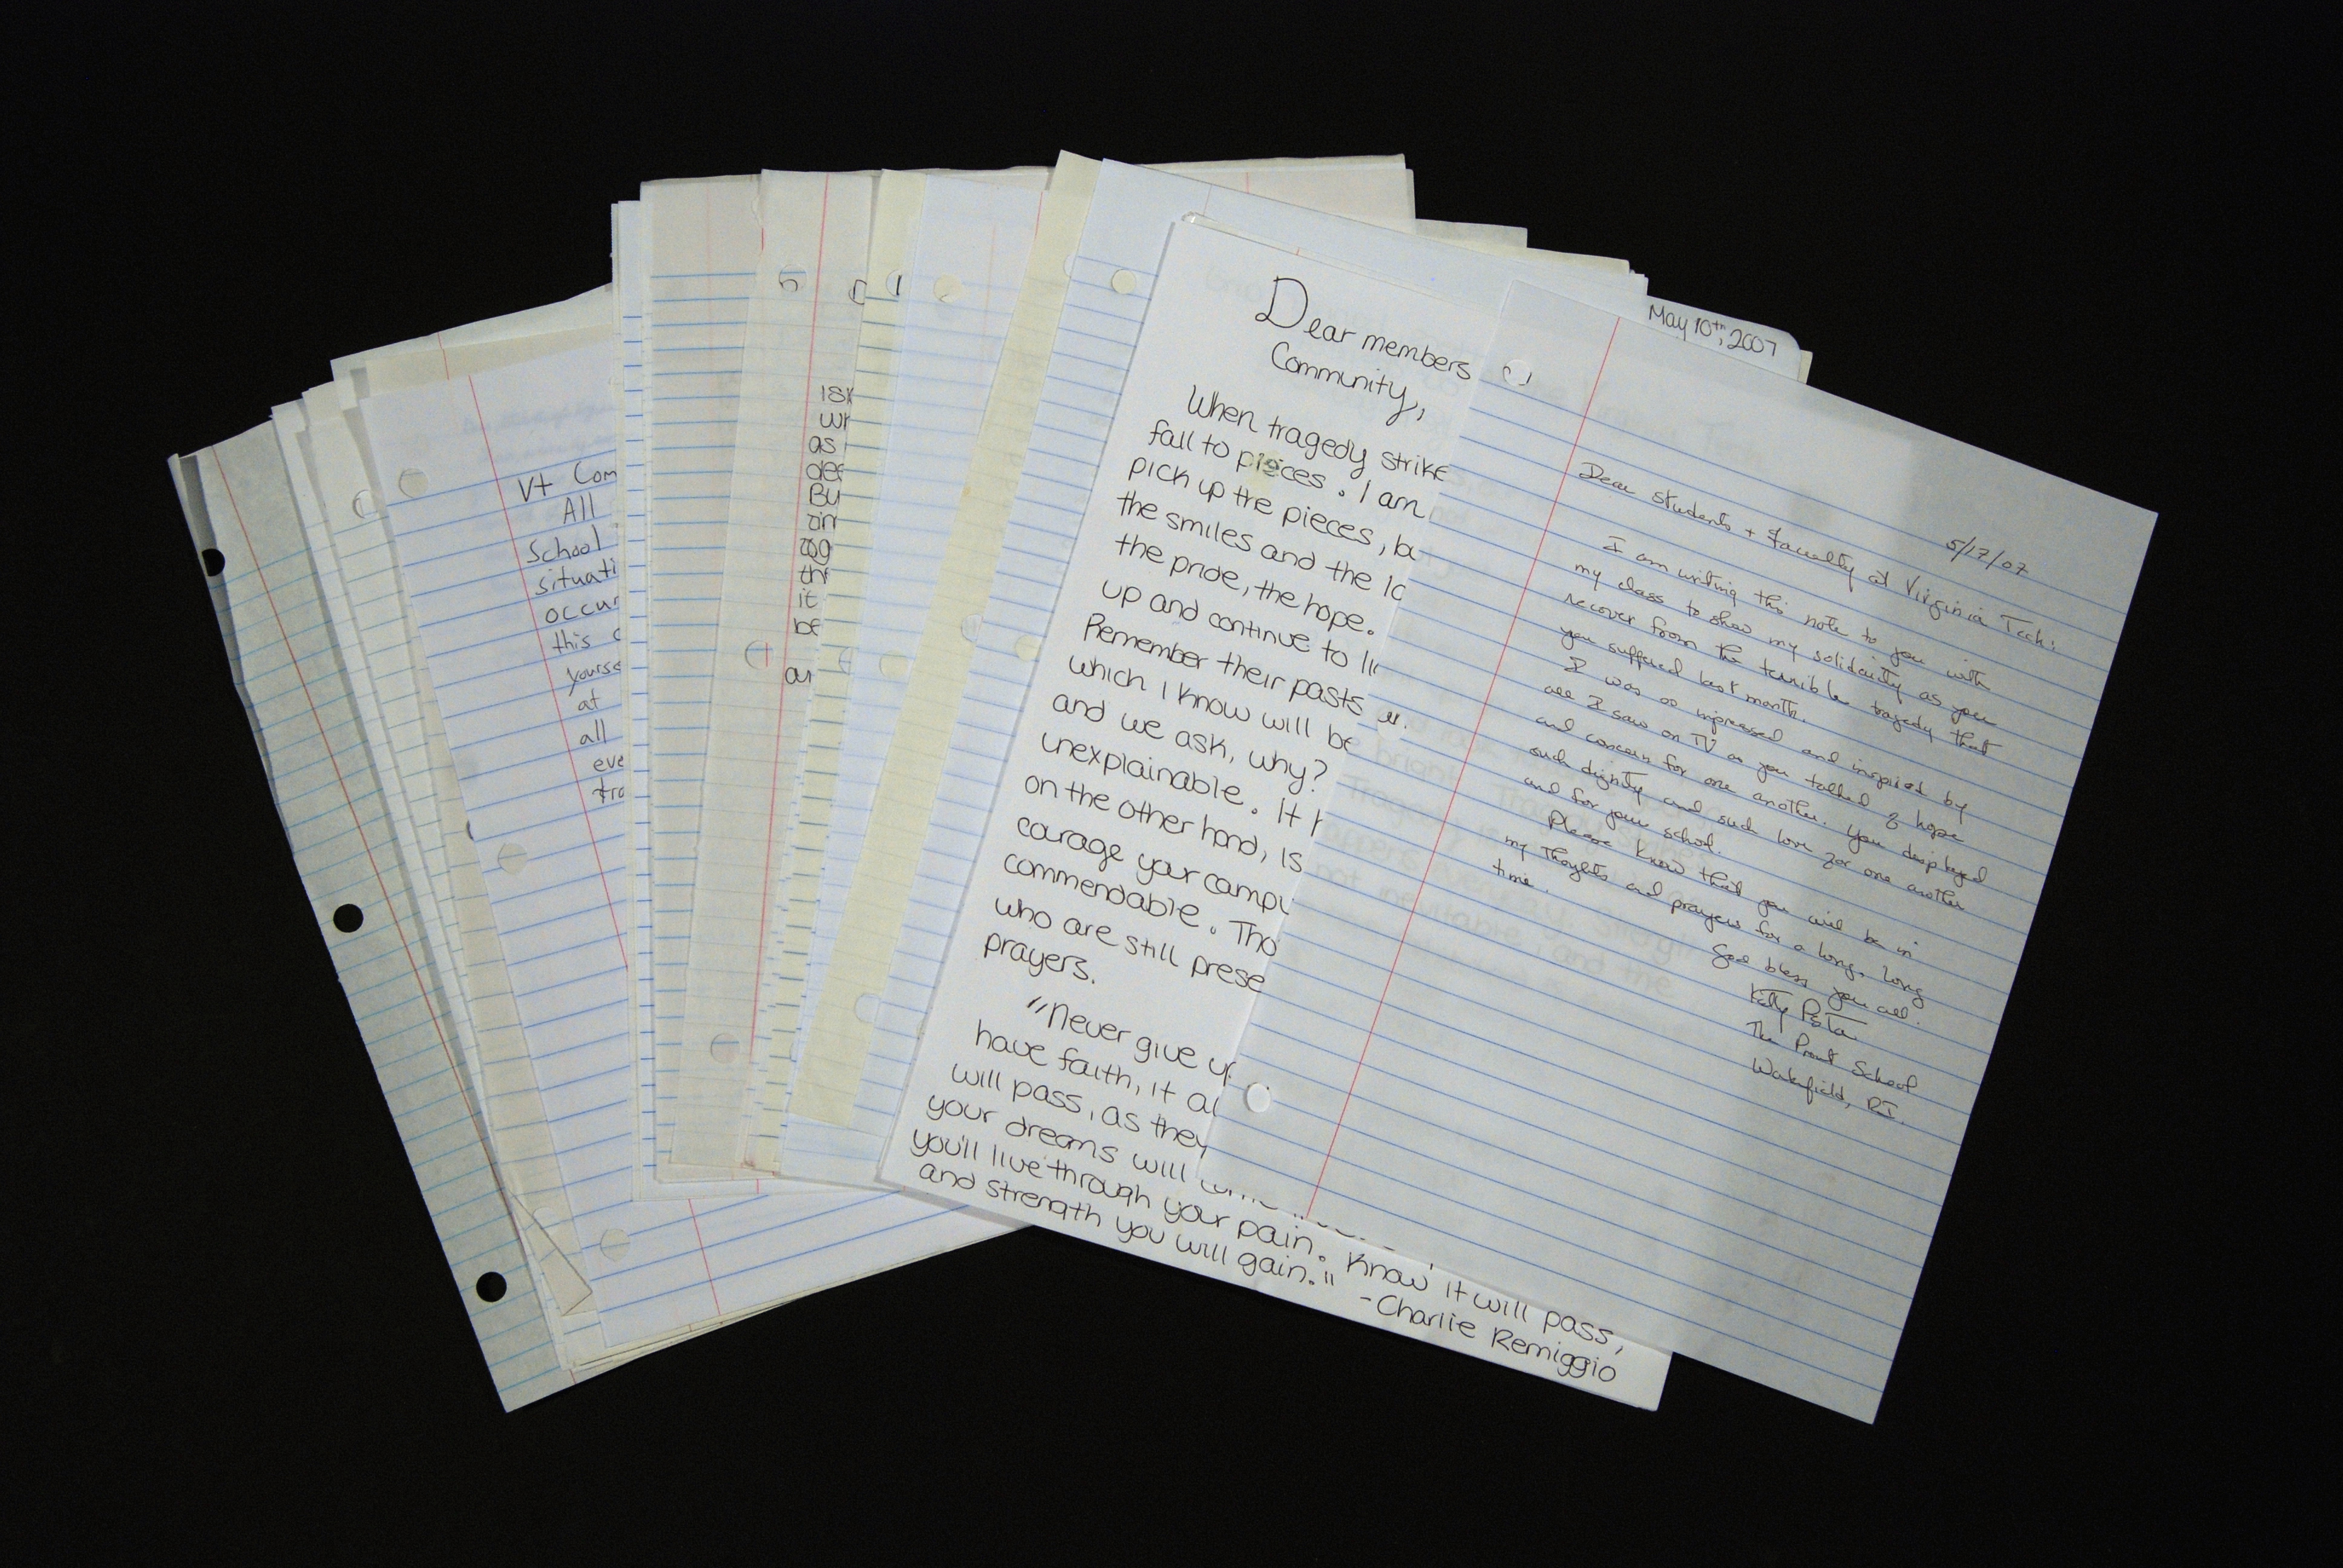 Vt Com
All
School
situati
occur
this c
yourse
at
all
eve
tra
ISK
wr
as
des
BU
an
tog
th
it
be
as
May 10th, 2007
Dear members
Community,
When tragedy strike
fall to pieces. I am
pick up the pieces, bu
the smiles and the la
the pride, the hope.
up and continue to li
Remember their pasts
which I know will be
and we ask, why?
unexplainable. It h
on the other hand, is
courage your campu
commendable. Tho
who are still prese
prayers.
"Never give up
have faith, it al
will pass, as they
your dreams will come
you'll live through your pain. Know it will pass,
and strength you will gain."
-Charlie Remiggio
5/17/07
Dear students + faculty at Virginia Tech:
I am writing this note to you with
my class to show my solidarity as you
recover from the terrible tragedy that
you suffered last month.
I was so impressed and inspired by
all I saw on TV as you talked of hope
and concern for one another. You displayed
such dignity and such love for one another
and for your school.
Please know that you will be in
my thoughts and prayers for a long, long
time.
God bless you all.
Kitty
The Prout School
Wakefield, RI.